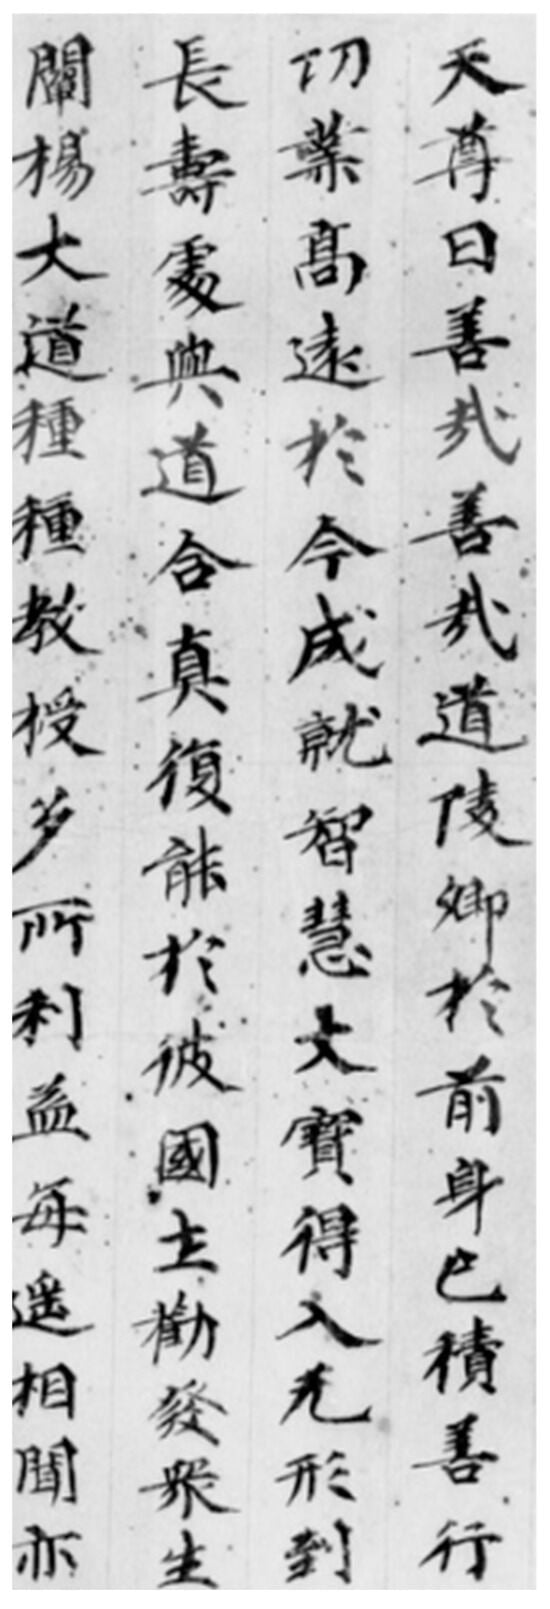 天尊曰善哉善哉道陵卿於前身已積善行
功業高遠於今成就智慧大寶得入无形到
長壽處與道合真復能於彼國土勸發衆生
闡楊大道種種教授多所利益每遥相聞亦